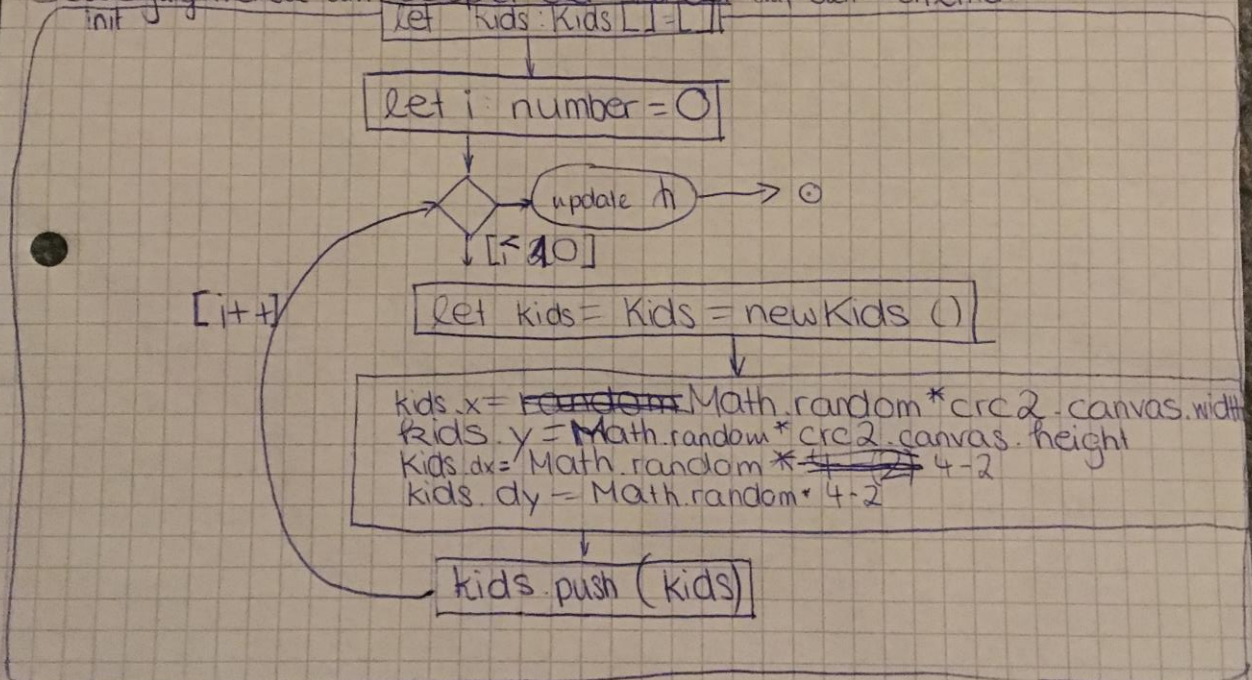 init
let kids: Kids[]=[]
let i: number = 0
update
[i<10]
[i++]
let kids= Kids = newKids ()
kids.x= Math.random * crc2.canvas.width
kids.y = Math.random * crc2.canvas.height
kids.dx= Math.random * 4-2
kids.dy = Math.random * 4-2
kids.push (kids)